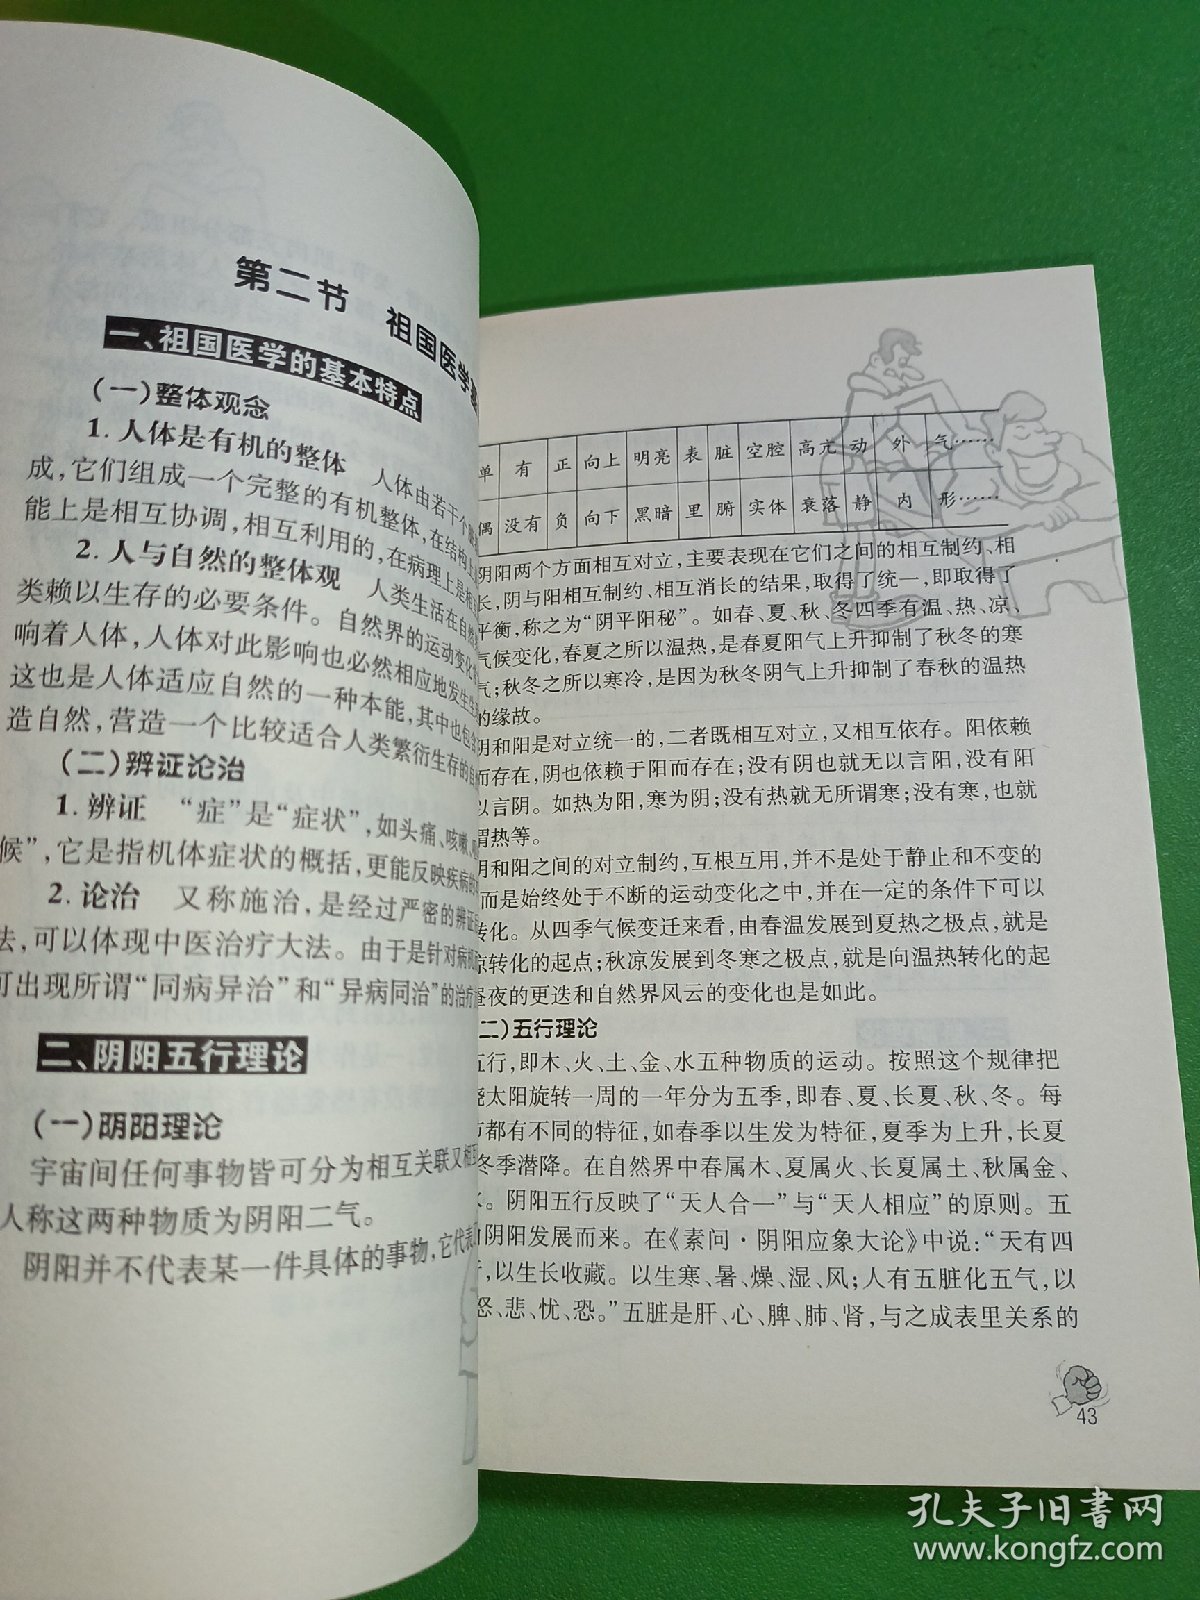 第二节 祖国医学
一、祖国医学的基本特点
(一)整体观念
1. 人体是有机的整体 人体由若干个
成,它们组成一个完整的有机整体,在结构上
能上是相互协调,相互利用的,在病理上是相
2. 人与自然的整体观 人类生活在自然
类赖以生存的必要条件。自然界的运动变化
响着人体,人体对此影响也必然相应地发生
这也是人体适应自然的一种本能,其中也包
造自然,营造一个比较适合人类繁衍生存的自
(二)辨证论治
1. 辨证 “症”是“症状”,如头痛、咳嗽、
候”,它是指机体症状的概括,更能反映疾病的
2. 论治 又称施治,是经过严密的辨证
法,可以体现中医治疗大法。由于是针对病机
可出现所谓“同病异治”和“异病同治”的治疗
二、阴阳五行理论
(一)阴阳理论
宇宙间任何事物皆可分为相互关联又相互
人称这两种物质为阴阳二气。
阴阳并不代表某一件具体的事物,它代表
单 有 正 向上 明亮 表 脏 空腔 高亢 动 外 气……
偶 没有 负 向下 黑暗 里 腑 实体 衰落 静 内 形……
阴阳两个方面相互对立,主要表现在它们之间的相互制约、相
长,阴与阳相互制约、相互消长的结果,取得了统一,即取得了
平衡,称之为“阴平阳秘”。如春、夏、秋、冬四季有温、热、凉、
气候变化,春夏之所以温热,是春夏阳气上升抑制了秋冬的寒
气;秋冬之所以寒冷,是因为秋冬阴气上升抑制了春秋的温热
的缘故。
阴和阳是对立统一的,二者既相互对立,又相互依存。阳依赖
而存在,阴也依赖于阳而存在;没有阴也就无以言阳,没有阳
以言阴。如热为阳,寒为阴;没有热就无所谓寒;没有寒,也就
谓热等。
阴和阳之间的对立制约,互根互用,并不是处于静止和不变的
而是始终处于不断的运动变化之中,并在一定的条件下可以
转化。从四季气候变迁来看,由春温发展到夏热之极点,就是
凉转化的起点;秋凉发展到冬寒之极点,就是向温热转化的起
昼夜的更迭和自然界风云的变化也是如此。
二)五行理论
五行,即木、火、土、金、水五种物质的运动。按照这个规律把
绕太阳旋转一周的一年分为五季,即春、夏、长夏、秋、冬。每
都有不同的特征,如春季以生发为特征,夏季为上升,长夏
冬季潜降。在自然界中春属木、夏属火、长夏属土、秋属金、
水。阴阳五行反映了“天人合一”与“天人相应”的原则。五
阴阳发展而来。在《素问·阴阳应象大论》中说:“天有四
,以生长收藏。以生寒、暑、燥、湿、风;人有五脏化五气,以
怒、悲、忧、恐。”五脏是肝、心、脾、肺、肾,与之成表里关系的
43
孔夫子旧书网
www.kongfz.com